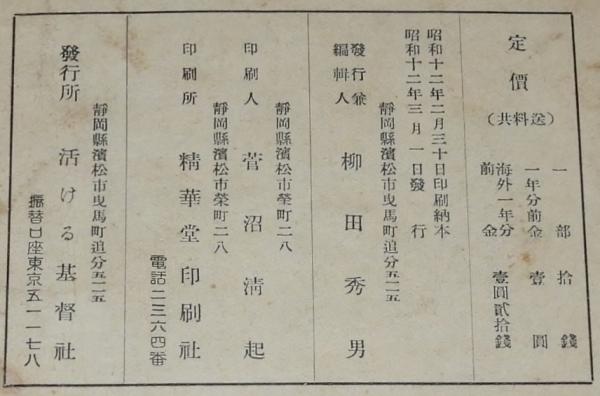 定價
(送料共)
一部 拾錢
一年分前金 壹圓
海外一年分前金 壹圓貳拾錢
昭和十二年二月三十日印刷納本
昭和十二年三月一日發行
靜岡縣濱松市曳馬町追分五二五
發行兼編輯人 柳田秀男
靜岡縣濱松市榮町二八
印刷人 菅沼淸起
靜岡縣濱松市榮町二八
印刷所 精華堂印刷社
電話二三六四番
靜岡縣濱松市曳馬町追分五二五
發行所 活ける基督社
振替口座東京五一一七八